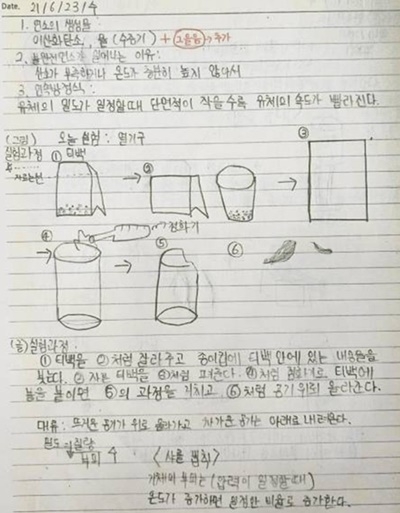 Date. 21/6/23/수
1. 연소의 생성물
이산화탄소, 물 (수증기) + 그을음 → 추가
2. 불완전연소가 일어나는 이유:
산소가 부족하거나 온도가 충분히 높지 않아서
3. 연속방정식:
유체의 밀도가 일정할때 단면적이 작을수록 유체의 속도가 빨라진다.
(그림) 오늘 실험 : 열기구
실험과정 ① 티백 ② ③
자르는선
점화기
④ ⑤ ⑥
(글) 실험과정 :
① 티백을 ②처럼 잘라주고 종이컵에 티백 안에 있는 내용물을
붓는다. ② 자른 티백을 ③처럼 펴준다. ④처럼 점화기로 티백에
불을 붙이면 ⑤의 과정을 거치고 ⑥처럼 공기 위로 올라간다.
대류 : 뜨거운 공기가 위로 올라가고 차가운 공기는 아래로 내려온다.
밀도 질량
부피 <샤를 법칙>
기체의 부피는 (압력이 일정할때)
온도가 증가하면 일정한 비율로 증가한다.